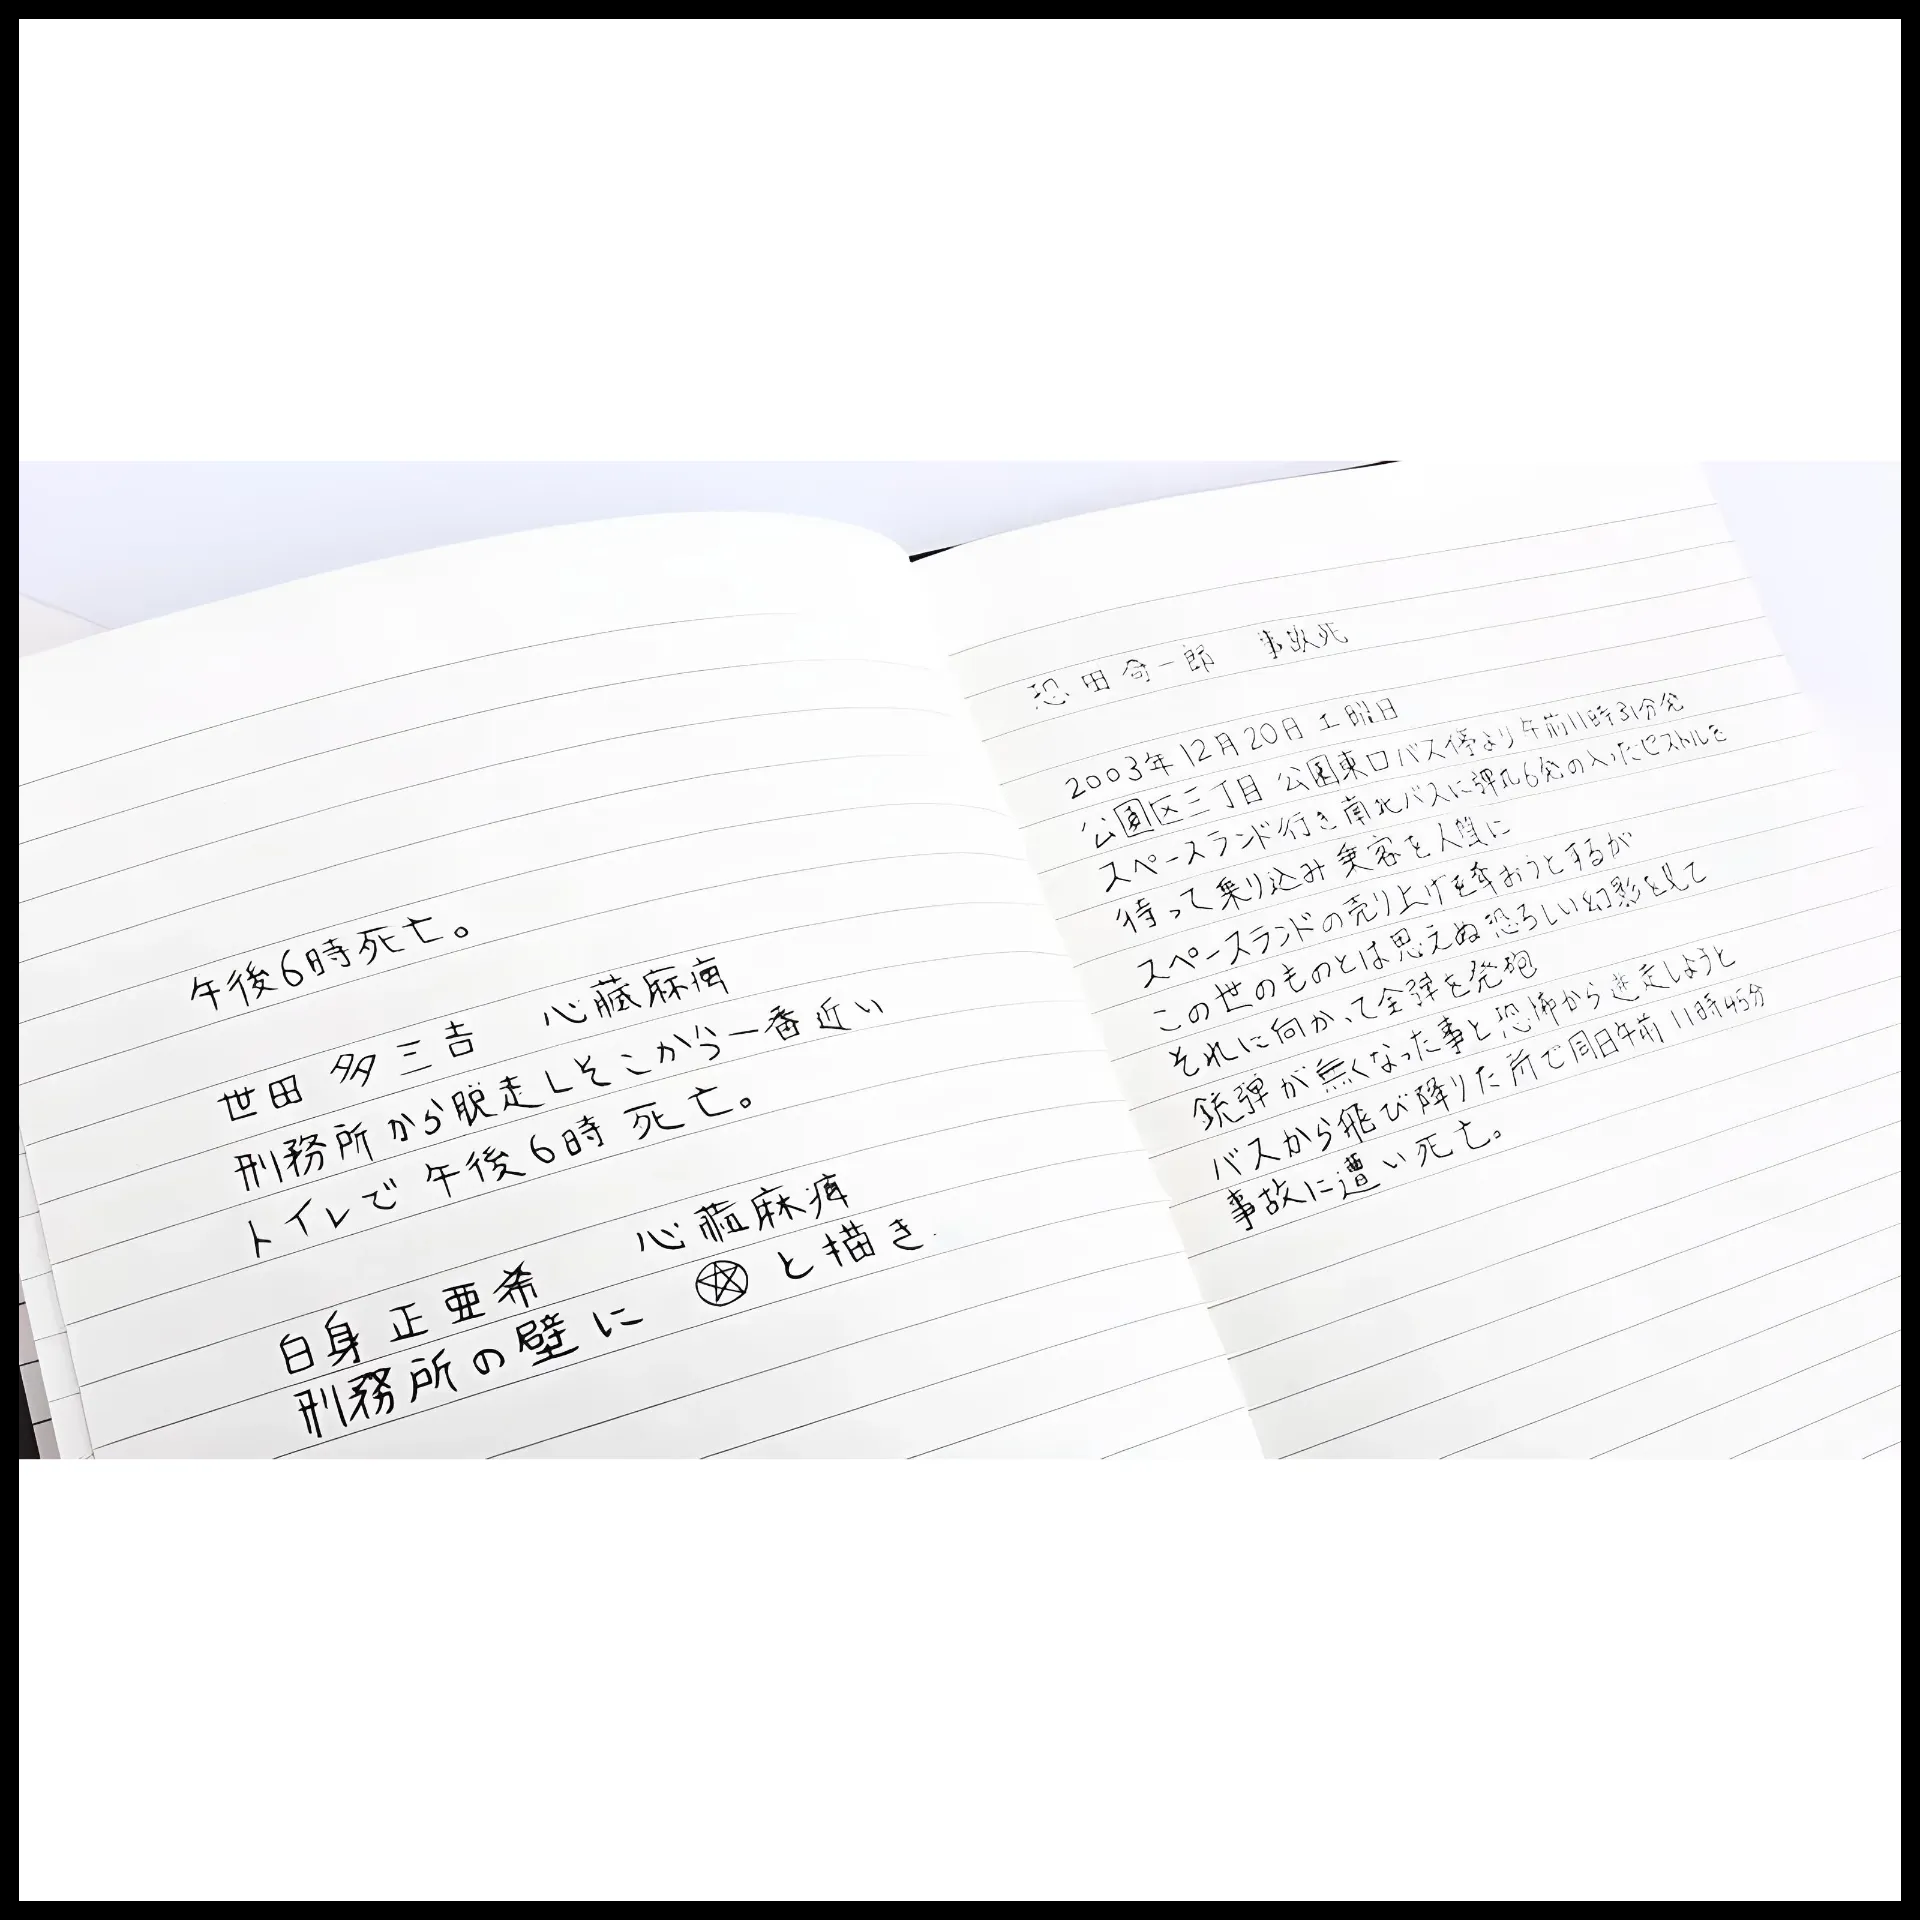 午後6時死亡。
世田 多三吉 心臓麻痺
刑務所から脱走しそこから一番近い
トイレで午後6時死亡。
白身 正亜希 心臓麻痺
刑務所の壁に と描き
恐田奇一郎 事故死
2003年12月20日土曜日
公園区三丁目 公園東口バス停より午前11時31分発
スペースランド行き南北バスに弾丸6発の入ったピストルを
待って乗り込み乗客を人質に
スペースランドの売り上げを奪おうとするが
この世のものとは思えぬ恐ろしい幻影を見て
それに向かって全弾を発砲
銃弾が無くなった事と恐怖から逃走しようと
バスから飛び降りた所で同日午前11時45分
事故に遭い死亡。